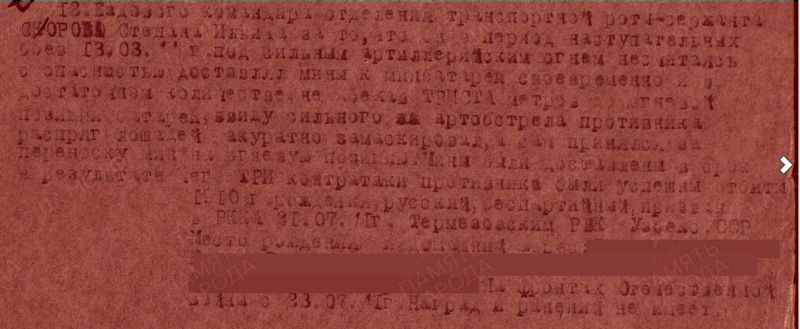 18. Ездового командира отделения транспортной роты-сержанта
СКОРОВА Степана Ильича за то, что он в период наступательных
боев 13.03. г. под сильным артиллерийским огнем несчитаясь
с опасностью доставлял мины к минбатареи своевременно и в
достаточном количестве, не доехав ТРИСТА метров до огневой
позиции батареи, ввиду сильного артобстрела противника
распряг лошадей акуратно замаскировал, а сам принялся за
переноску мин на огневую позицию. Мины были доставлены в срок
в результате чего ТРИ контратаки противника были успешны отбиты
1910 г. рождения, русский, беспартийный, призван
в РККА 21.07.41г. Термезовским РВК Узбекс.ССР
Место рождения
На фронтах Отечественной
войны с 23.07.41г. Наград и ранений не имеет.
ПАМЯТЬ
НАРОДА